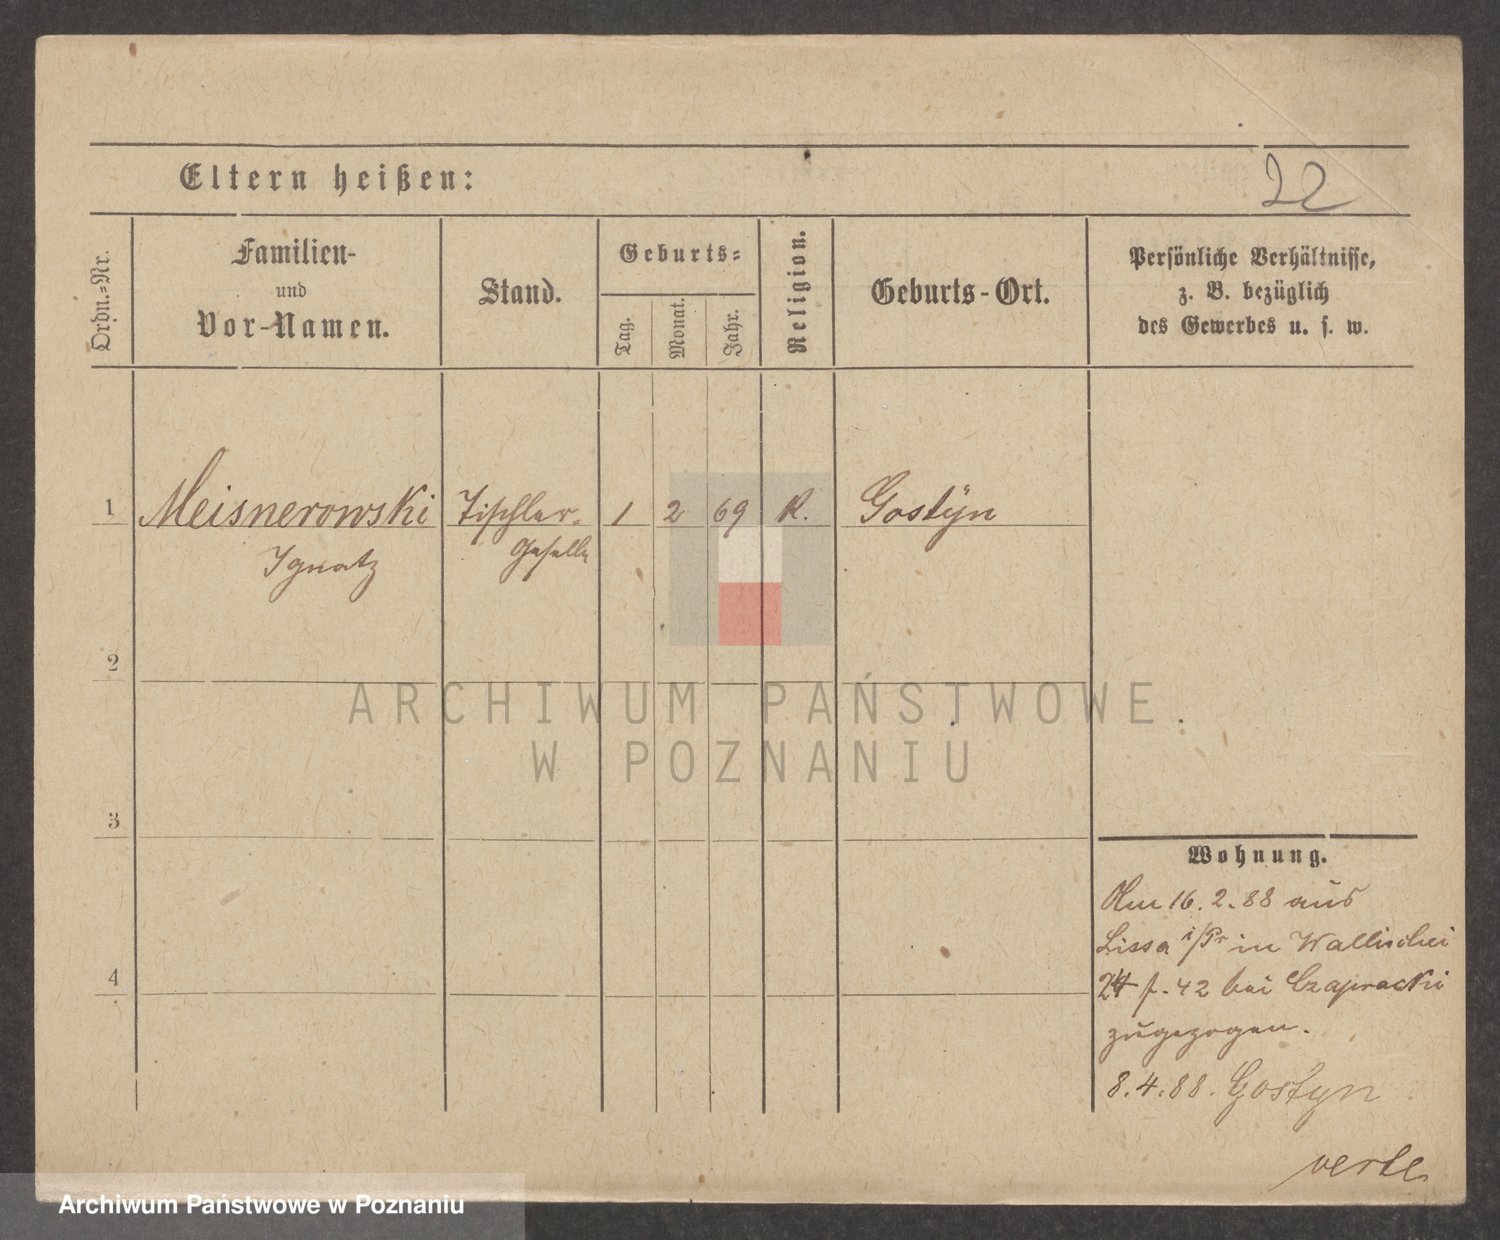 22
Eltern heißen:
Ordn.-Nr.
Familien-
und
Vor-Namen.
Stand.
Geburts-
Tag.
Monat.
Jahr.
Religion.
Geburts-Ort.
Persönliche Verhältnisse,
z. B. bezüglich
des Gewerbes u. s. w.
1 Meisnerowski Tischler- 1 2 69 R. Gostÿn
Ignatz Geselle
2
3
4
Wohnung.
Am 16.2.88 aus
Lissa i/Pr in Wallischei
24 f. 42 bei Czapracki
zugezogen.
8.4.88. Gostyn
verte
ARCHIWUM PAŃSTWOWE
W POZNANIU
Archiwum Państwowe w Poznaniu